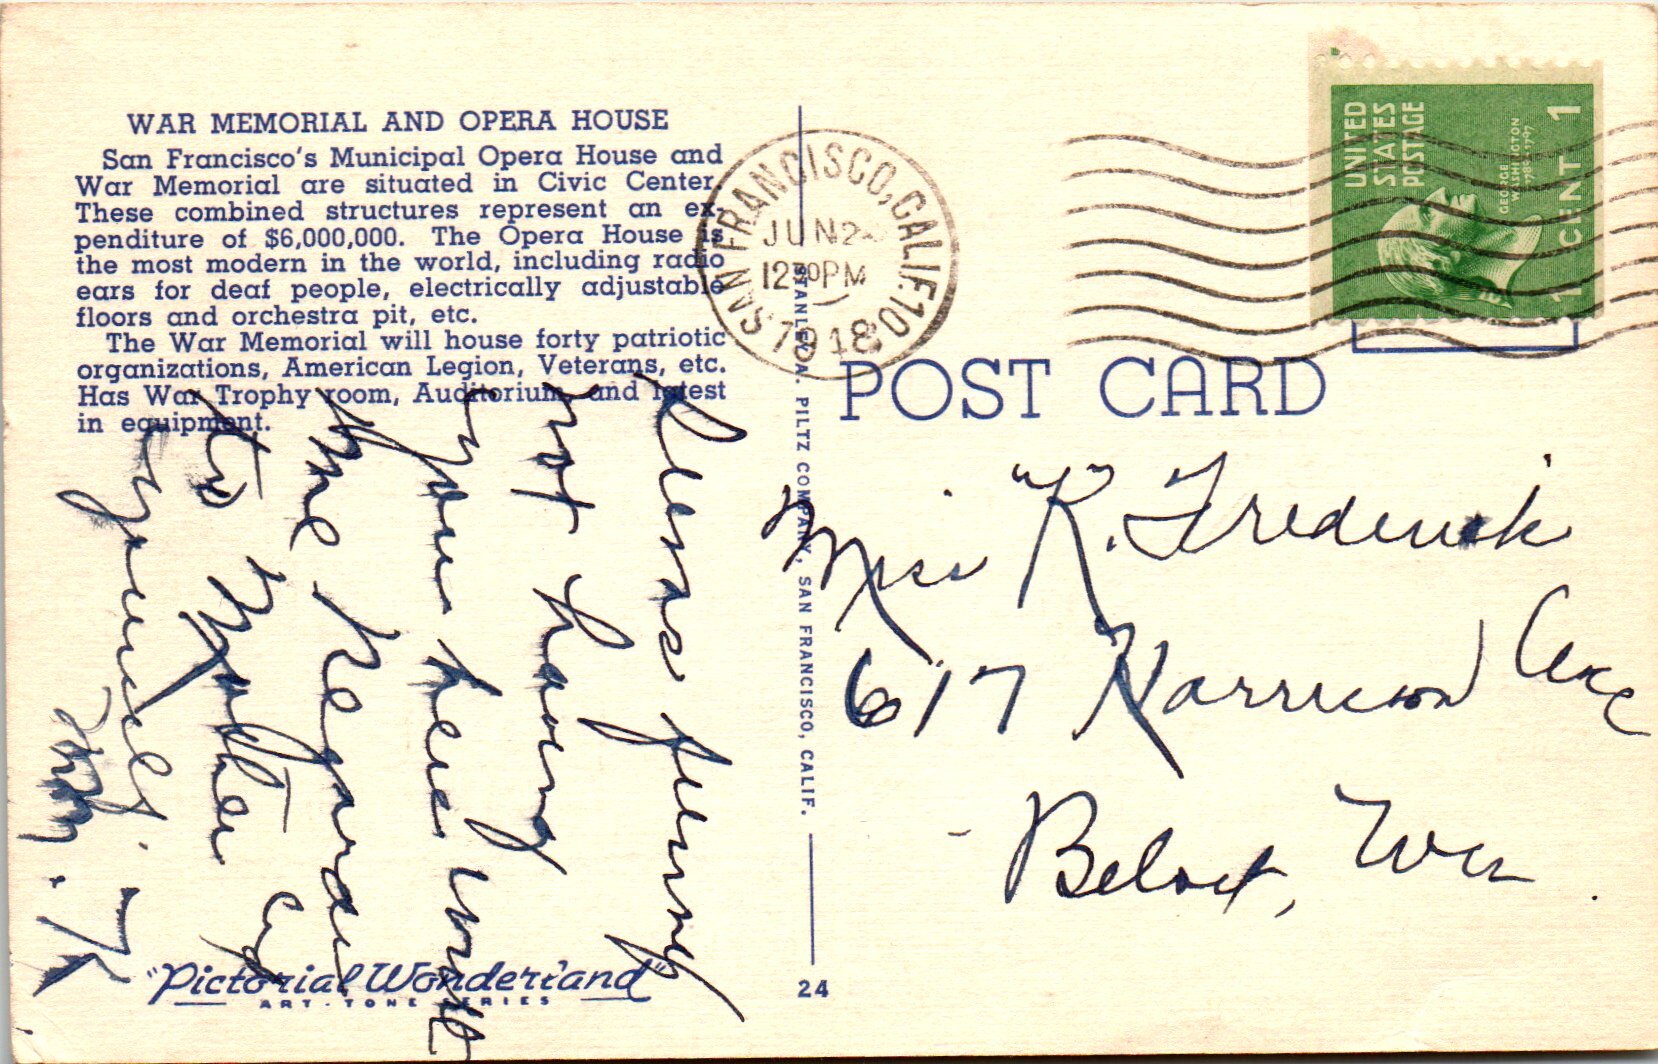 WAR MEMORIAL AND OPERA HOUSE
San Francisco's Municipal Opera House and
War Memorial are situated in Civic Center.
These combined structures represent an ex-
penditure of $6,000,000. The Opera House is
the most modern in the world, including radio
ears for deaf people, electrically adjustable
floors and orchestra pit, etc.
The War Memorial will house forty patriotic
organizations, American Legion, Veterans, etc.
Has War Trophy room, Auditorium and latest
in equipment.
Seems funny
not having
you here with
me Regards
to Mother and
yourself.
"Pictorial Wonderland"
ART-TONE SERIES
STANLEY A. PILTZ COMPANY, SAN FRANCISCO, CALIF.
24
SAN FRANCISCO, CALIF. 10
JUN 2
12 30 PM
19
UNITED
STATES
POSTAGE
GEORGE
WASHINGTON
1789-1797
1 CENT 1
POST CARD
Miss "K". Frederick
617 Harrison Ave
Beloit, Wis